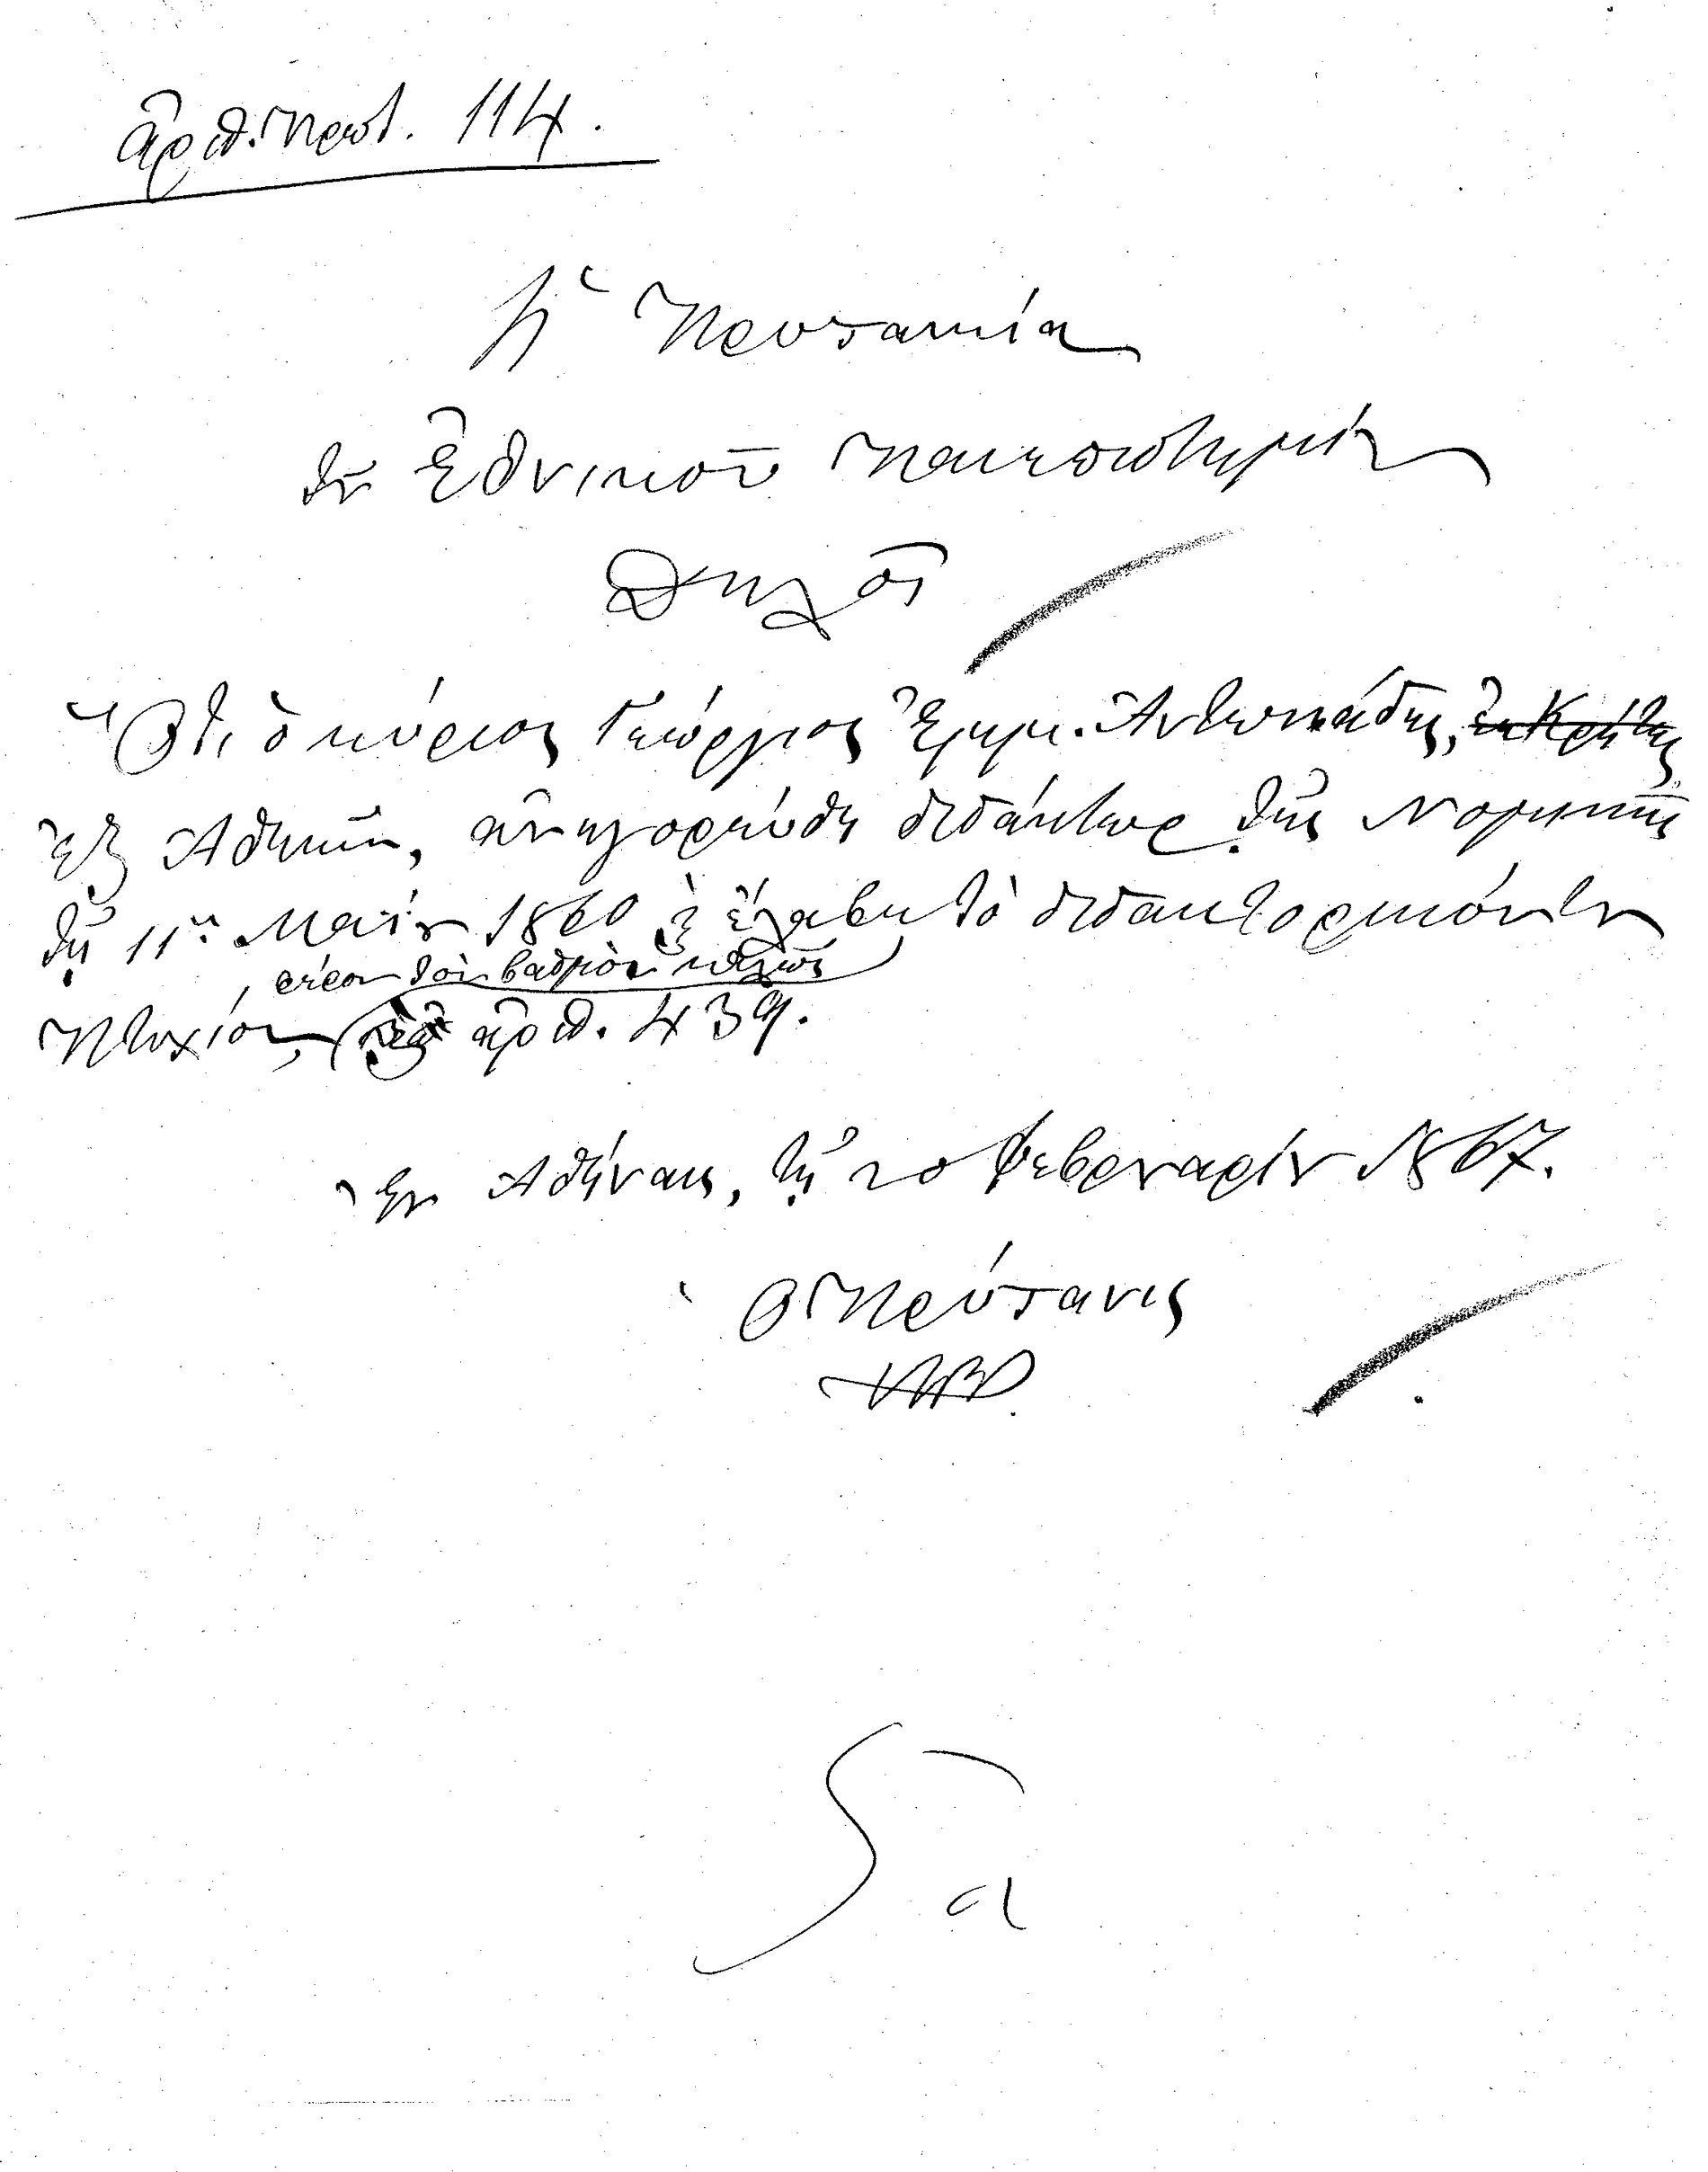 ἀριθ. Πρωτ. 114.
Ἡ Πρυτανεία
τοῦ Ἐθνικοῦ Πανεπιστημίου
Δηλοῖ
Ὅτι ὁ κύριος Γεώργιος Ἐμμ. Ἀντωνιάδης, ἐκ Κρήτης
ἐξ Ἀθηνῶν, ἀνηγορεύθη διδάκτωρ τῆς Νομικῆς
τῇ 11ῃ Μαΐου 1860 ἔλαβε τὸ διδακτορικόν του
φέρον τὸν βαθμὸν καλῶς
Πτυχίον, ἀριθ. 439.
Ἐν Ἀθήναις, τῇ 20 Φεβρουαρίου 1867.
Ὁ Πρύτανις